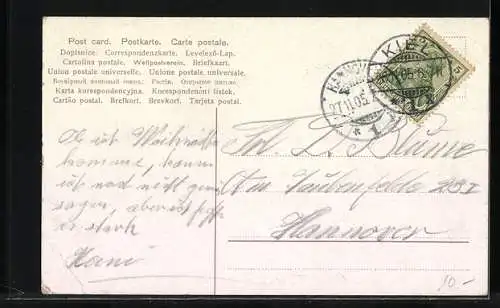 Post card. Postkarte. Carte postale.
Dopisnice. Correspondenzkarte. Levelező-Lap.
Cartolina postale. Weltpostverein. Briefkaart.
Union postale universelle. Unione postale universale.
Karta korespondencyjna. Korespondenční lístek.
Cartão postal. Brefkort. Brevkort. Tarjeta postal.
KIEL
HANNOVER
27.11.05.
* 1
5
Ob ich Weihnachten
komme, kann
ich noch nicht genau
sagen, aber ich hoffe
es stark
Hans
Frl. D. Blume
Am Taubenfelde 23I
Hannover
10.-